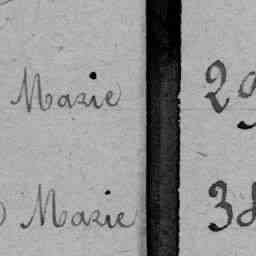 Marie 29
Marie 38